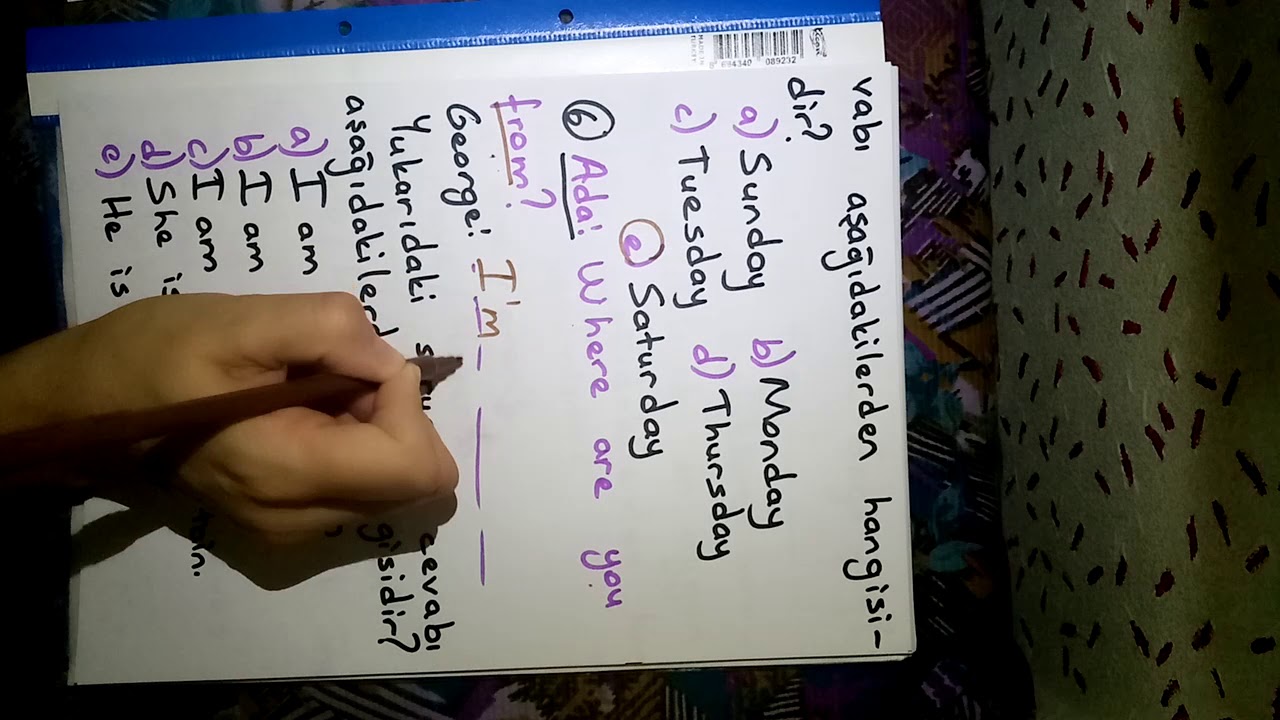 vabı aşağıdakilerden hangisi-
dir?
a) Sunday b) Monday
c) Tuesday d) Thursday
e) Saturday
6 Ada: Where are you
from?
George: I'm
Yukarıdaki cevabı
aşağıdakilerd gisidir?
a) I am
b) I am
c) I am
d) She is
e) He is
8 694340 089232